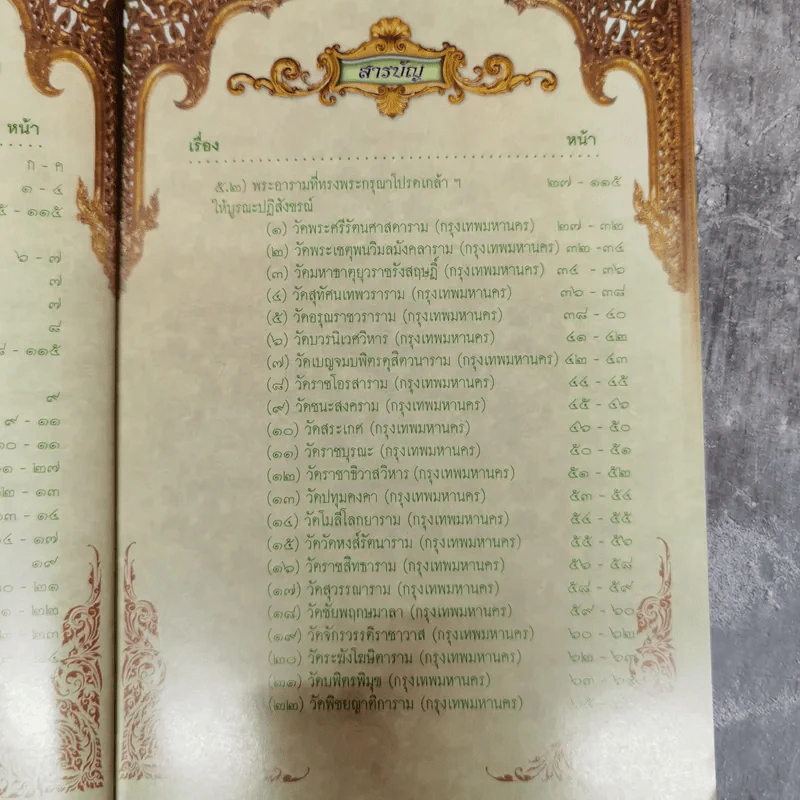 หน้า
ก - ค
๑ - ๔
๕ - ๑๑๕
๖ - ๗
๗
๗
๘
๘ - ๑๑๕
๙
๙ - ๑๑
๑๐ - ๑๑
๑๑ - ๒๗
๑๒ - ๑๓
๑๓ - ๑๔
๑๔ - ๑๗
๑๙
๒๐ - ๒๑
๒๑ - ๒๒
๒๒ - ๒๓
สารบัญ
เรื่อง หน้า
๕.๒) พระอารามที่ทรงพระกรุณาโปรดเกล้า ฯ ๒๗ - ๑๑๕
ให้บูรณะปฏิสังขรณ์
(๑) วัดพระศรีรัตนศาสดาราม (กรุงเทพมหานคร) ๒๗ - ๓๒
(๒) วัดพระเชตุพนวิมลมังคลาราม (กรุงเทพมหานคร) ๓๒ -๓๔
(๓) วัดมหาธาตุยุวราชรังสฤษฎิ์ (กรุงเทพมหานคร) ๓๔ - ๓๖
(๔) วัดสุทัศนเทพวราราม (กรุงเทพมหานคร) ๓๖ - ๓๘
(๕) วัดอรุณราชวราราม (กรุงเทพมหานคร) ๓๘ - ๔๐
(๖) วัดบวรนิเวศวิหาร (กรุงเทพมหานคร) ๔๑ - ๔๒
(๗) วัดเบญจมบพิตรดุสิตวนาราม (กรุงเทพมหานคร) ๔๒ - ๔๓
(๘) วัดราชโอรสาราม (กรุงเทพมหานคร) ๔๔ - ๔๕
(๙) วัดชนะสงคราม (กรุงเทพมหานคร) ๔๕ - ๔๖
(๑๐) วัดสระเกศ (กรุงเทพมหานคร) ๔๖ - ๕๐
(๑๑) วัดราชบุรณะ (กรุงเทพมหานคร) ๕๐ - ๕๑
(๑๒) วัดราชาธิวาสวิหาร (กรุงเทพมหานคร) ๕๑ - ๕๒
(๑๓) วัดปทุมคงคา (กรุงเทพมหานคร) ๕๓ - ๕๔
(๑๔) วัดโมลีโลกยาราม (กรุงเทพมหานคร) ๕๔ - ๕๕
(๑๕) วัดวัดหงส์รัตนาราม (กรุงเทพมหานคร) ๕๕ - ๕๖
(๑๖) วัดราชสิทธาราม (กรุงเทพมหานคร) ๕๖ - ๕๘
(๑๗) วัดสุวรรณาราม (กรุงเทพมหานคร) ๕๘ - ๕๙
(๑๘) วัดชัยพฤกษมาลา (กรุงเทพมหานคร) ๕๙ - ๖๐
(๑๙) วัดจักรวรรดิราชาวาส (กรุงเทพมหานคร) ๖๐ - ๖๒
(๒๐) วัดระฆังโฆษิตาราม (กรุงเทพมหานคร) ๖๒ - ๖๓
(๒๑) วัดบพิตรพิมุข (กรุงเทพมหานคร) ๖๓ -
(๒๒) วัดพิชยญาติการาม (กรุงเทพมหานคร)